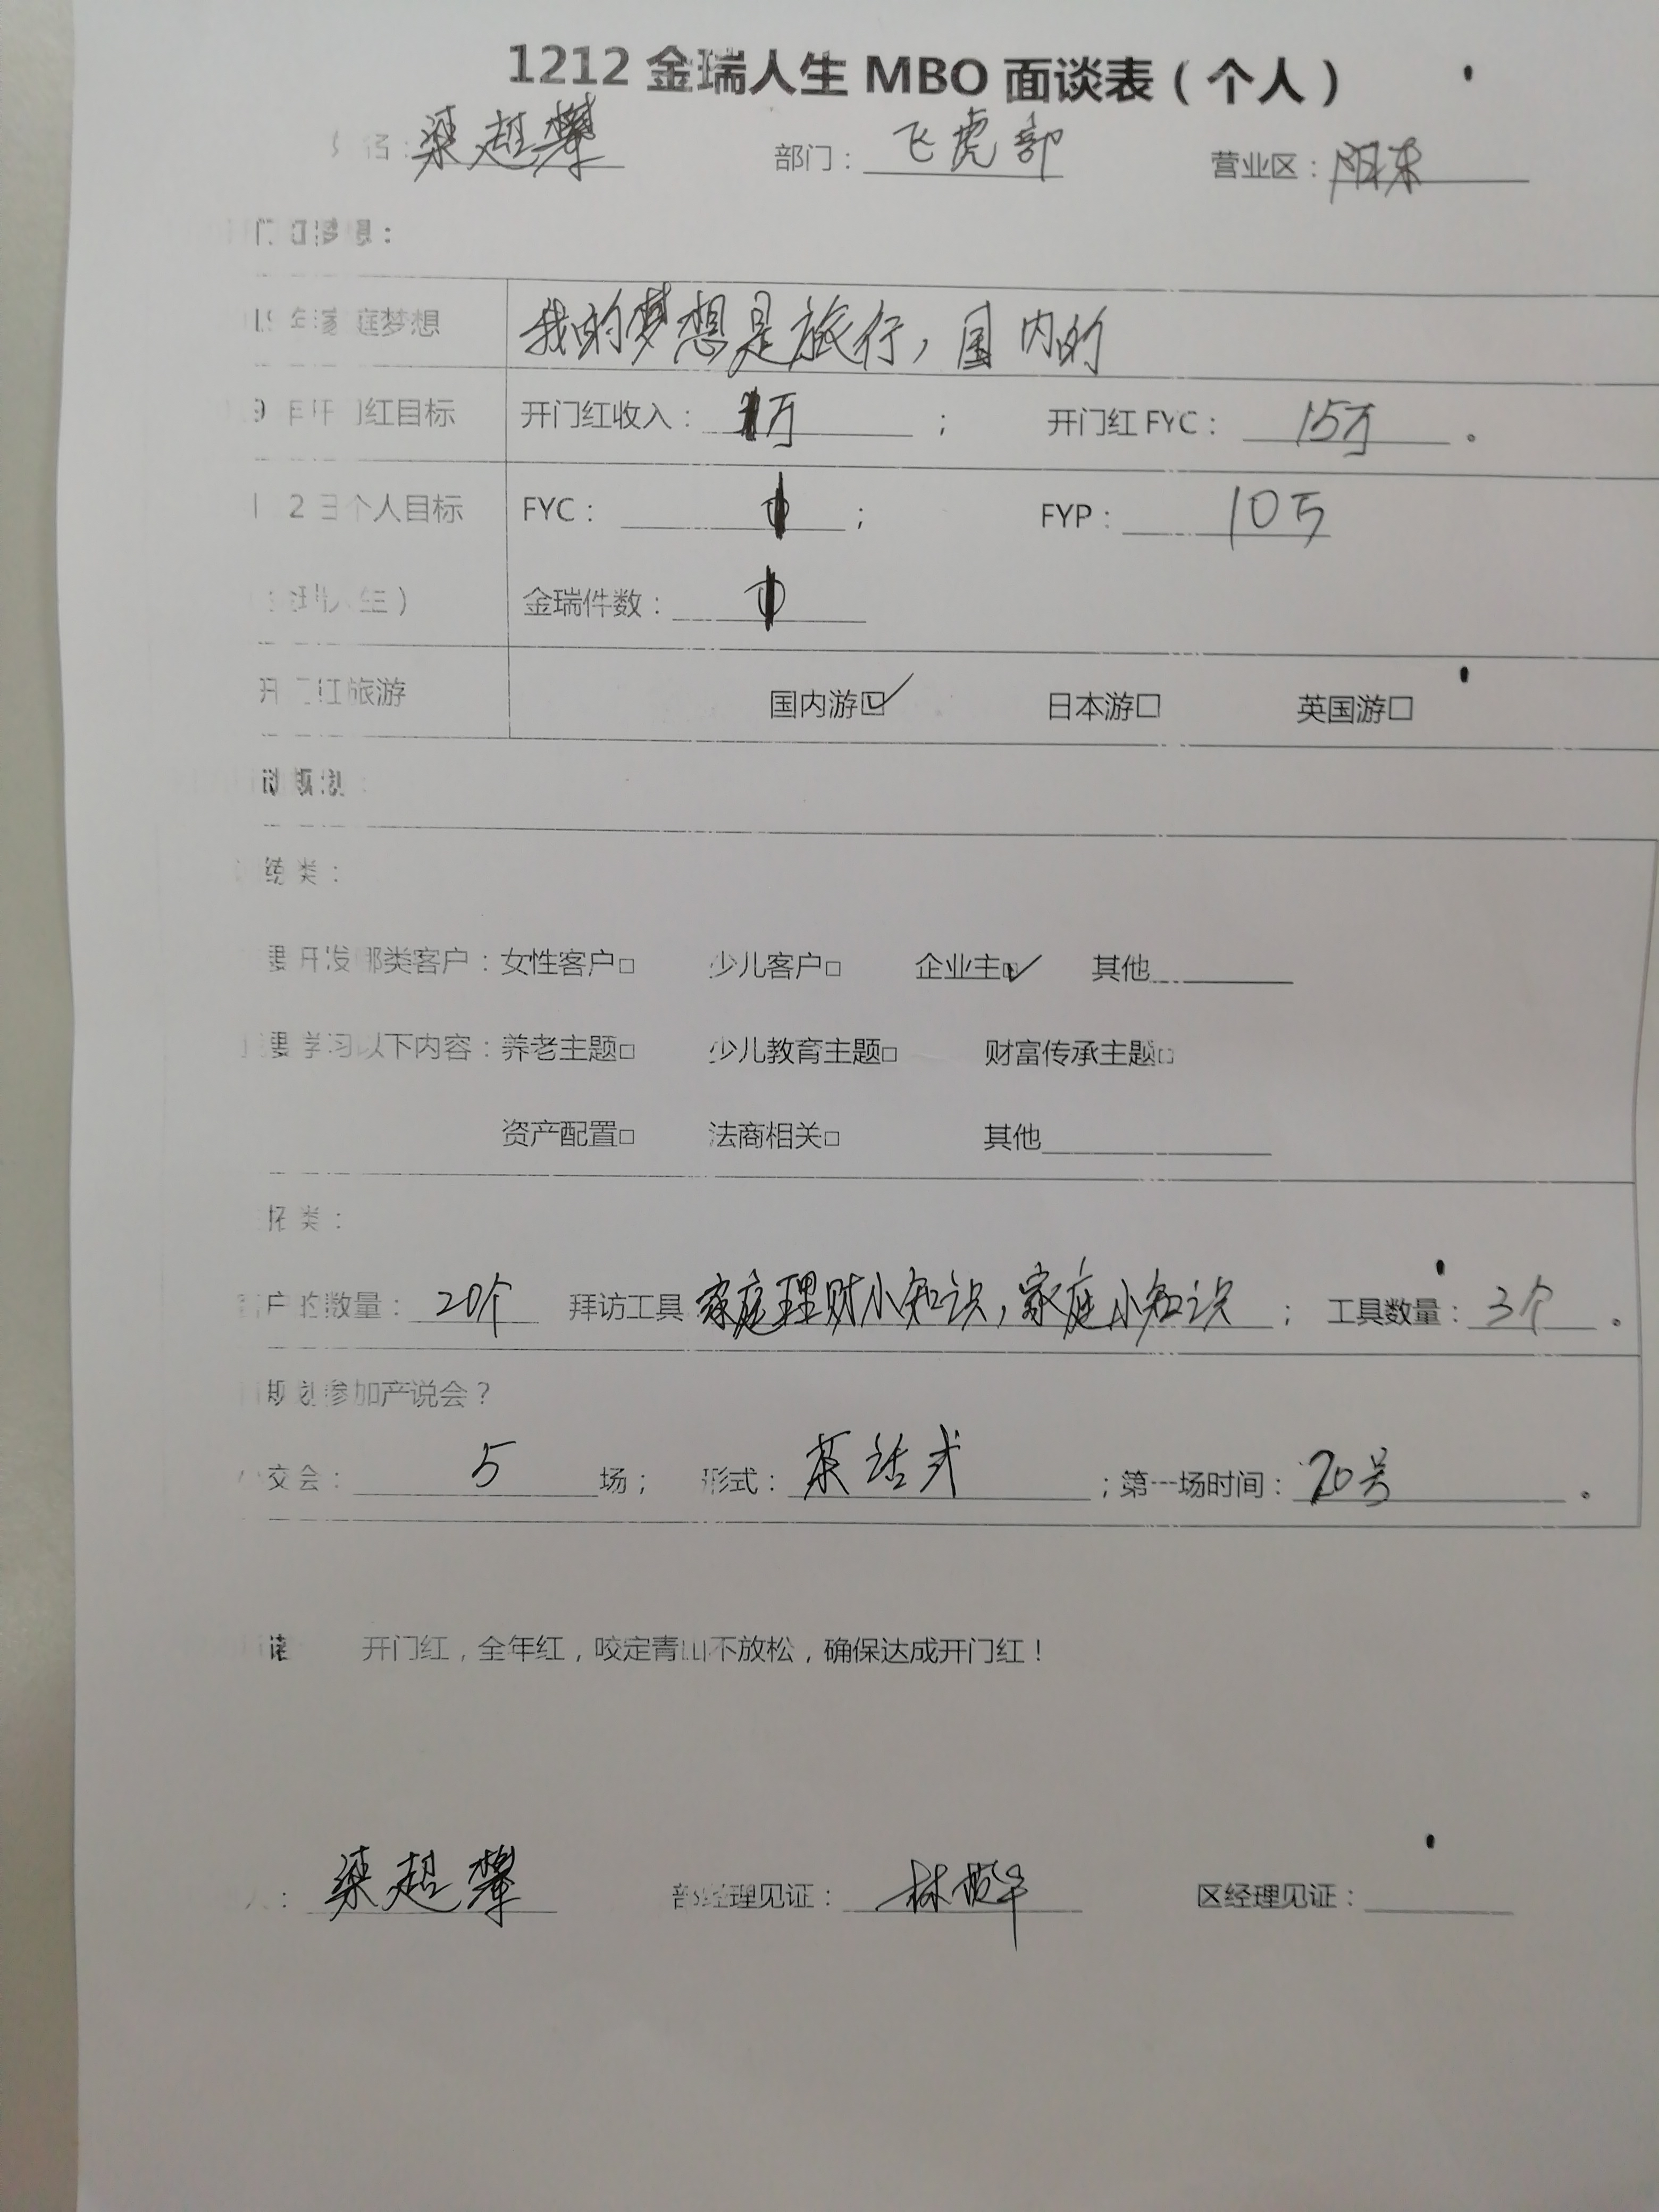 1212金瑞人生MBO面谈表（个人）
梁超攀 部门：飞虎部 营业区：阳东
年家庭梦想 我的梦想是旅行，国内的
9年开门红目标 开门红收入：万； 开门红FYC：15万。
2日个人目标 FYC：； FYP：10万
金瑞人生） 金瑞件数：
开门红旅游 国内游☑ 日本游□ 英国游□
动规划：
类：
要开发哪类客户：女性客户□ 少儿客户□ 企业主☑ 其他
要学习以下内容：养老主题□ 少儿教育主题□ 财富传承主题□
资产配置□ 法商相关□ 其他
类：
客户的数量：20个 拜访工具 家庭理财小知识，家庭小知识； 工具数量：3个。
规划参加产说会？
交会：5场； 形式：茶话式；第一场时间：20号。
开门红，全年红，咬定青山不放松，确保达成开门红！
人：梁超攀 部经理见证：林 区经理见证：